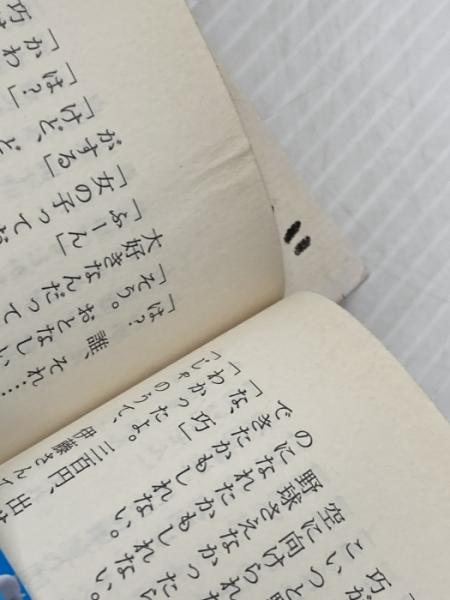 「は？　誰、それ……
「そう。おとなしい
大好きなんだって
「ふーん」
「女の子ってお
がする」
「けど、ど
「は？」
「かわ
巧
伊藤さんて
「じゃのうて、三百円、出せ
「わかったよ。
「な、巧」
できたかもしれない。
になれたかもしれない。
の野球さえなかったら
空に向けられた
こいつと野
巧が